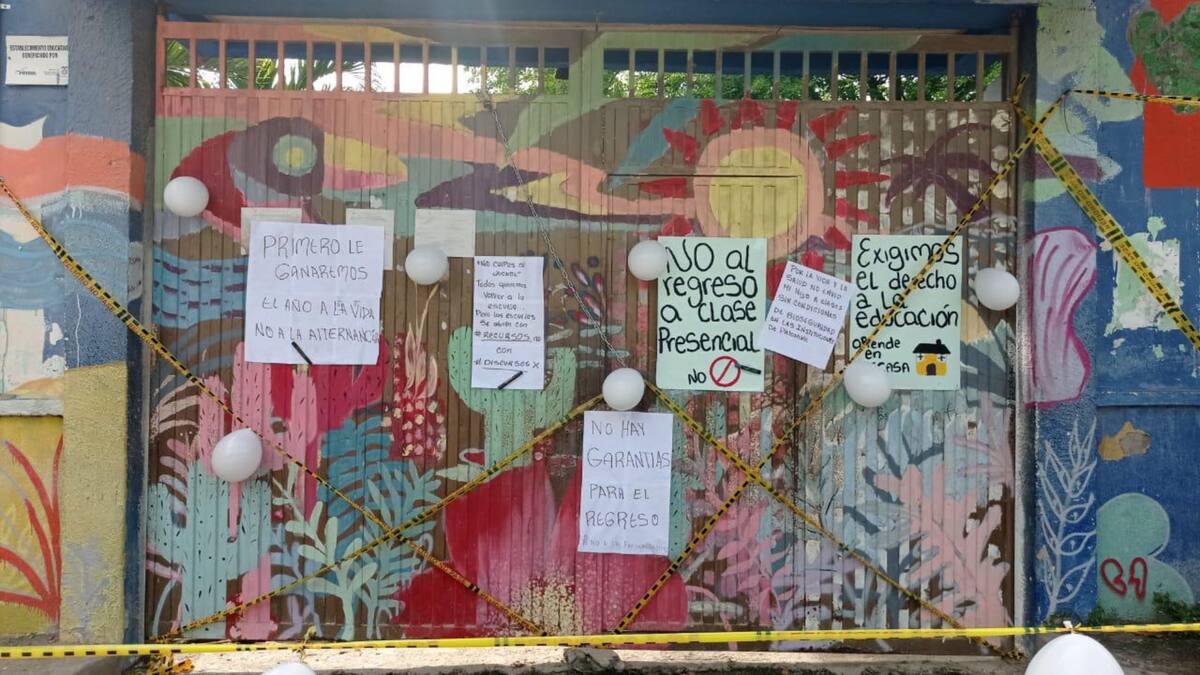 ESTABLECIMIENTO EDUCATIVO
BENEFICIADO POR
PRIMERO LE
GANAREMOS
EL AÑO A LA VIDA
NO A LA ALTERNANCIA
Todos queremos
Volver a la
escuela...
Pero las escuelas
Se abren con
RECURSOS
con
DISCURSOS X
NO HAY
GARANTIAS
PARA EL
REGRESO
NO Al
regreso
a clase
Presencial
NO
POR LA VIDA Y LA
SALUD NO ENVIO
MI HIJO A CLASES
SIN CONDICIONES
DE BIOSEGURIDAD
EN LAS INSTITUCIONES
Exigimos
el derecho
a la
educación
aprende
en
CASA